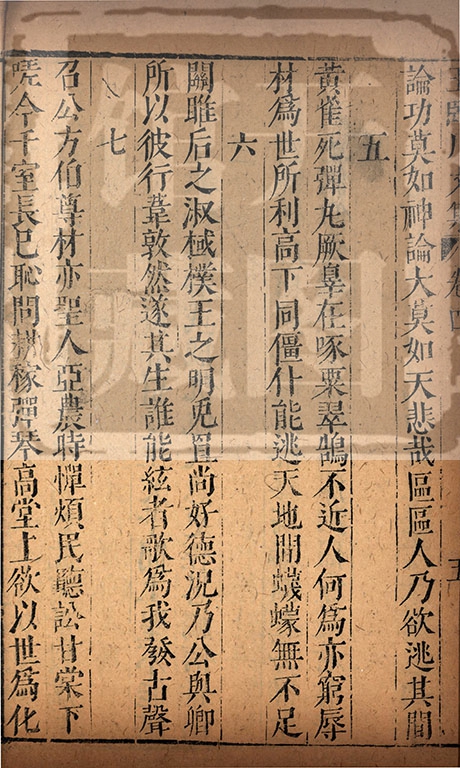 王臨川文集 卷四 五
論功莫如神論大莫如天悲哉區區人乃欲逃其間
五
黃雀死彈丸厥辠在啄粟翠鵠不近人何爲亦窮辱
材爲世所利高下同僵什能逃天地間蠛蠓無不足
六
關雎后之淑棫樸王之明兎罝尚好德況乃公與卿
所以彼行葦敦然遂其生誰能絃者歌爲我發古聲
七
召公方伯尊材亦聖人亞農時憚煩民聽訟甘棠下
嗟今千室長已恥問耕稼彈琴高堂上欲以世爲化